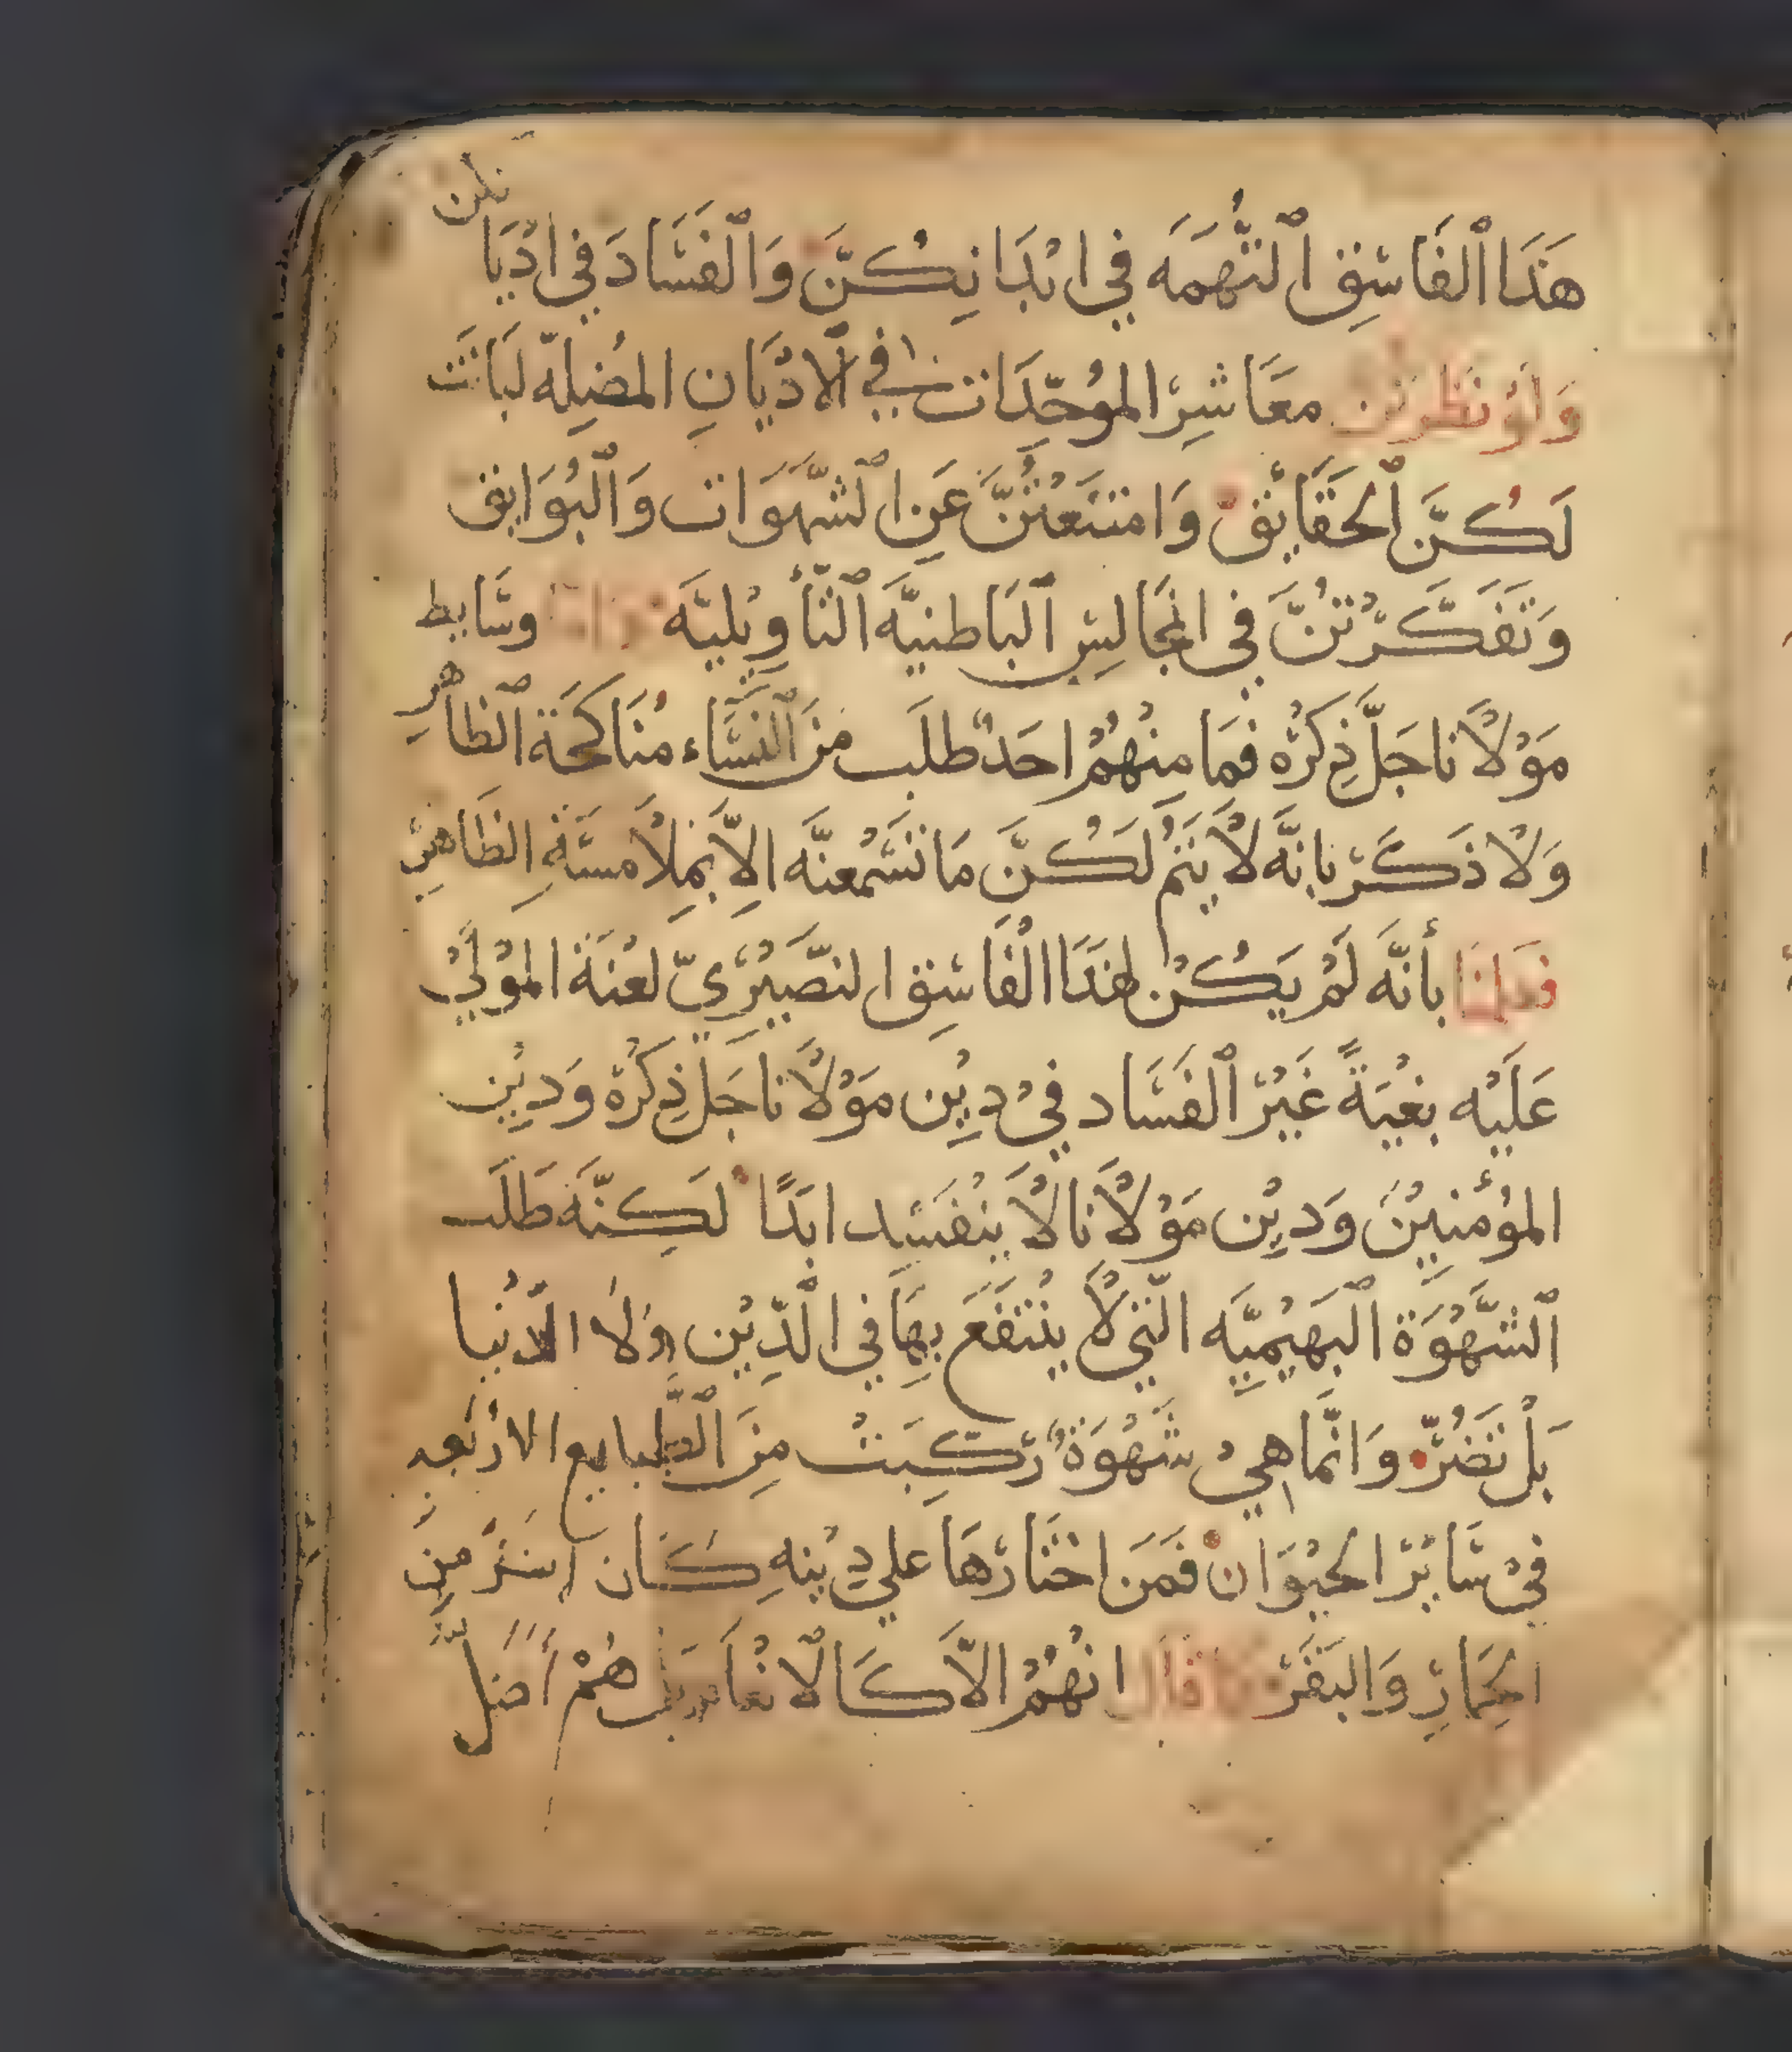 هَذَا ٱلفَاسِق ٱلتُّهمَه في ابْدَانِكُنَّ وَٱلفَسَادَ في ادْيَانكن
وَلَوْ نَظرتن معَاشِرْ الموُحِّدَات في ٱلادْيَانِ المُضِلّه لَبَانَت
لَكُنَّ ٱلحَقَائِق وَامتنَعْتُنَّ عَنِ ٱلشَّهَوَات وَٱلبُوَايق
وَتَفَكَّرْتُنَّ في المجَالِس ٱلبَاطنيَّه ٱلتَأوِيْليَّه وسَايط
مَوْلَانا جَلَّ ذِكرُه فمَا مِنْهُمْ احَدٌ طلَب منَ ٱلنسَاء مُنَاكحَة ٱلظاهر
وَلَا ذَكَرْ بانَّه لَا يَتمُ لَكُنَّ مَا تسَمْعنَّه الِاَّ بمِلَامسَةِ الظَاهِر
فعلمنَا بأنَّه لَمْ يَكُنْ لهَذَا الْفَاسِق النصَّيْرِيّ لعْنَة الموْلَيْ
عَلَيْه بغْيَةً غَيْرْ ٱلفَسَاد فيْ دِيْن مَوْلَانا جَلّ ذِكرُه وَدِيْن
المؤْمنِيْنَ وَدِيْن مَوْلَانا لَا ينْفَسِد ابَدًا لَكِنَّه طَلَب
ٱلشَّهْوَة ٱلبَهِيْميَّه الّتي لَا يُنْتفَعَ بهَا في الدِّيْن وَلَا الدّنْيا
بَلْ تضُرّ وَانَّما هِيْ شَهْوَةٌ رَكبَتْ مِنَ ٱلطَّبايع الارْبَعه
فيْ سَايْر الحيْوَان فمَن اختَارْهَا علي دِيْنهِ كَان اشَرّ مِنَ
الحمَارِ وَالبَقَرْ كما قال انهُمْ الاَّ كَالانعَام بَل هُمْ أَضَلّ